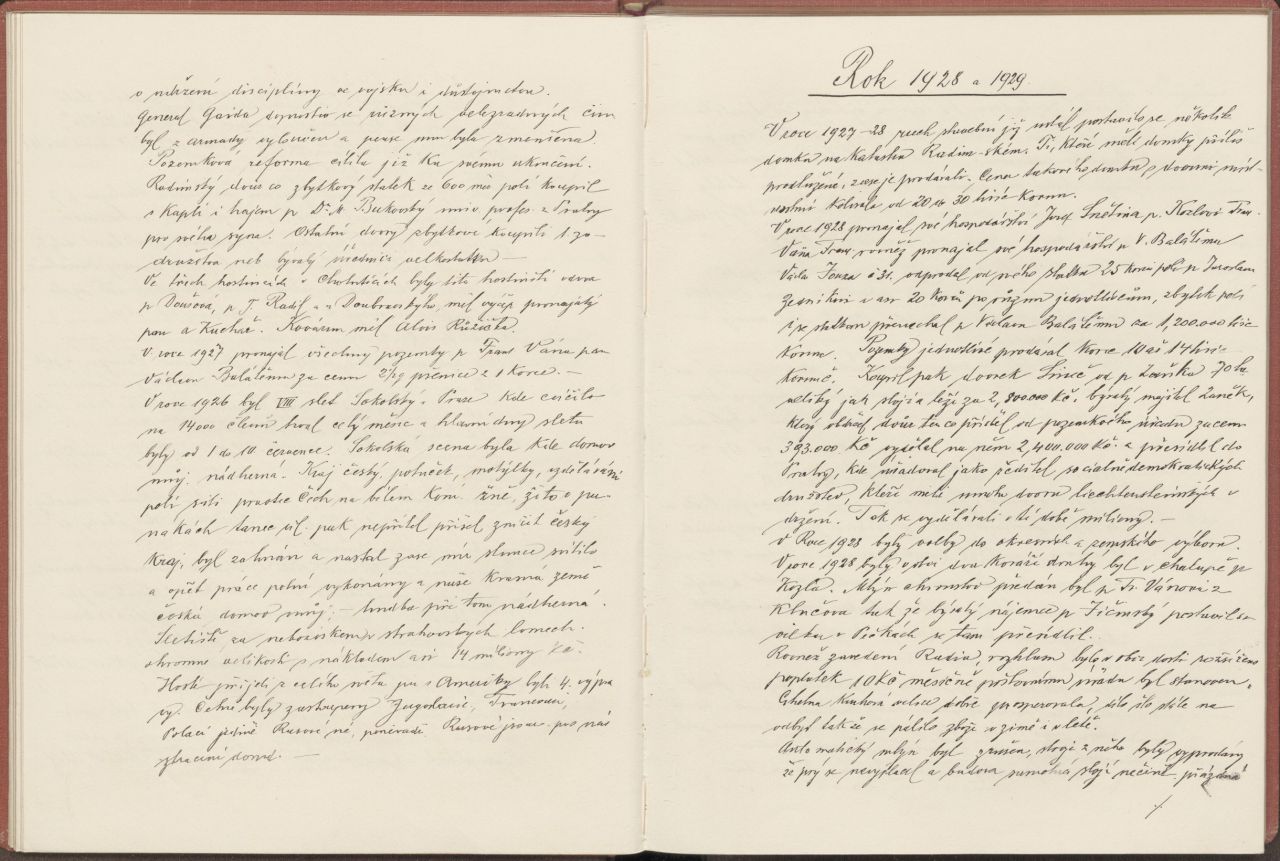 o snížení disciplíny ve vojsku i důstojnictvu.
General Gaida dopustiv se různých velezradných činů
byl z armády vyloučen a pense mu byla zmenšena.
Pozemková reforma cílila již ku svému ukončení.
Radimský dvůr co zbytkový statek ze 600 měr polí koupil
s kaplí i hájem p Dr. M. Bukovský univ. profes. z Prahy
pro svého syna. Ostatní dvory zbytkové koupili t. zv.
družstva neb bývalý úředníci velkostatku –
Ve třech hostincích v Chotuticích byly tito hostinští vdova
p Doušová, p T. Radil a u Doubravskýho měl výčep pronajatý
pan a Kuchař. Kovárnu měl Alois Růžička.
V roce 1927 pronajal všechny pozemky p Frant Vána pan
Václavu Balášemu za cenu pšenice z 1 korce. –
V roce 1926 byl VIII slet Sokolský v Praze kde cvičilo
na 14000 členů hrál celý měsíc a hlavní dny sletu
byly od 1 do 10 července. Sokolská scena byla Kde domov
můj. nádherná. Kraj český, potůček, motýlky, vzdělávání
polí síli praotec Čech na bílém koni. žně, žito v pa-
nákách tanec vil. pak nepřítel přišel zničit český
kraj, byl zahnán a nastal zase mír slunce svítilo
a opět práce polní vykonány a naše krasná země
česká domov můj; – hudba při tom nádherná.
Sletiště za nebozízkem v strahovských lomech.
ohromné velikosti s nákladem asi 14 miliony Kč.
Hosté přijeli z celého světa jen z Ameriky bylo 4. výpra
vy. Četně byly zastoupeny Jugoslavie, Francouzi,
Poláci jedině Rusové ne, poněvadž Rusové jsou pro nás
ztraceni domů. –
Rok 1928 a 1929.
V roce 1927–28 ruch stavební jí udál postavilo se několik
domků na katastru Radim-ském. Ti, kteří měli domky příliš
prodlužené, zase je prodávali. Cena takového domku s dvoumi míst-
nostmi kolísala od 20 do 30 tisíc Korun.
V roce 1928 pronajal své hospodářství Josef Snětina p. Kozlovi Fran.
Váňa Franc rovněž pronajal své hospodářství p V. Balášemu
Václav Jouza č 31. odprodal od svého statku 25 korců polí p Jaroslavu
Zedníkovi a asi 20 korců po různu jednotlivcům, zbytek polí
i se statkem přenechal p Václavu Balášemu za 1,200.000 tisíc
korun. Pozemky jednotlivé prodával korec 10 až 14 tisíc
korunč. Koupil pak dvorek od p Zaňka 70 ha
veliký jak stojí a leží za 2,800.000 Kč. bývalý majitel Zaněk,
který obdržel dvůr ten co příděl od pozemkového úřadu za cenu
393.000 Kč vydělal na něm 2,400.000 Kč. a přesídlel do
Prahy, kde úřadoval jako ředitel socialně demokratických
družstev, kteří měli mnoho dvorů liechtensteinských v
držení. Tak se vydělávali v té době miliony. –
V Roce 1928 byly volby do okresních a zemského výboru.
V roce 1928 byly v obci dva kováři druhý byl v chalupě p
Kozla. Mlýn a hamstro předán byl p Fr. Vánovi z
Klučova tak že bývalý nájemce p Jičínský postavil si
vilku v Pečkách se tam přesídlil.
Rovněž zavedení Radia, rozhlasu bylo v obci dosti rozšířeno
poplatek 10 Kč měsíčně poštovnímu úřadu byl stanoven.
Cihelna kruhová velice dobře prosperovala, šlo to stále na
odbyt takže se pálilo zboží v zimě i v létě.
Automatický mlýn byl zrušen, stroje z něho byly vyprodány
že prý se nevyplácel a budova samotná stojí nečinně prázdná